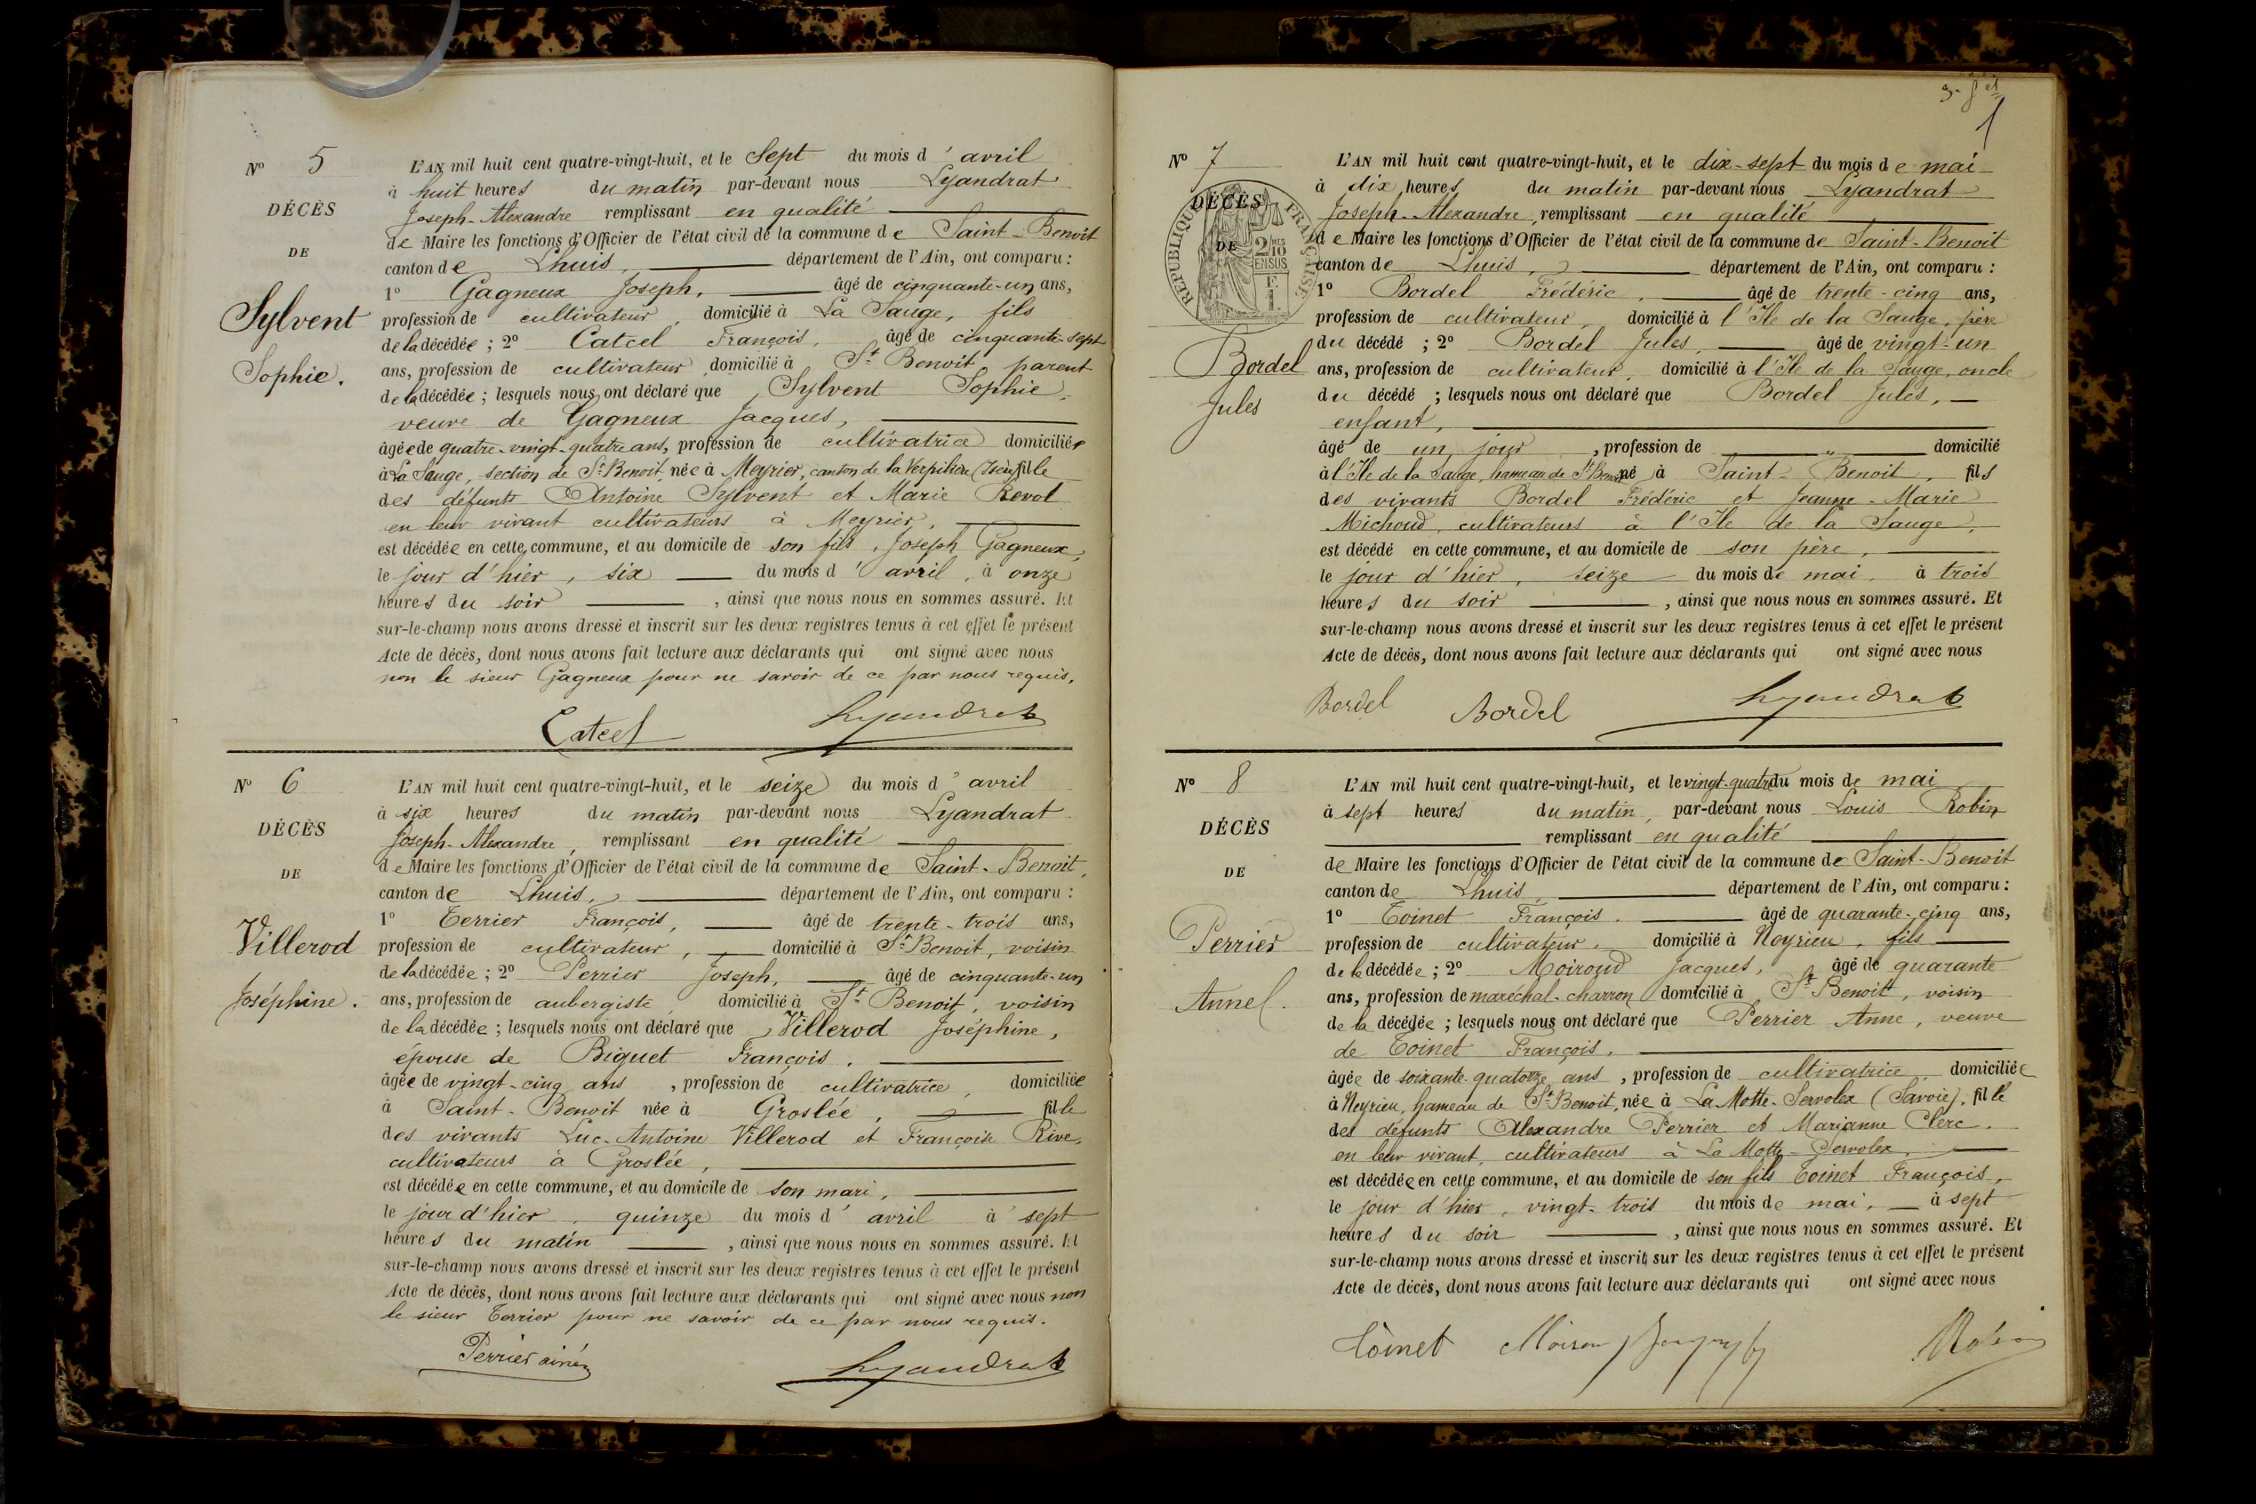 N° 5
DÉCÈS
DE
Sylvent
Sophie.
L'AN mil huit cent quatre-vingt-huit, et le Sept du mois d'avril
à huit heures du matin par-devant nous Lyandrat
Joseph-Alexandre remplissant en qualité
de Maire les fonctions d'Officier de l'état civil de la commune de Saint-Benoit
canton de Lhuis, département de l'Ain, ont comparu :
1° Gagneux Joseph, âgé de cinquante-un ans,
profession de cultivateur, domicilié à La Sauge, fils
de la décédée ; 2° Catcel François, âgé de cinquante-sept
ans, profession de cultivateur domicilié à St Benoit parent
de la décédée ; lesquels nous ont déclaré que Sylvent Sophie,
veuve de Gagneux Jacques,
âgée de quatre-vingt-quatre ans, profession de cultivatrice domiciliée
à La Sauge, section de St Benoit, née à Meyrier, canton de la Verpilière (Isère) fille
des défunts Antoine Sylvent et Marie Revol
en leur vivant cultivateurs à Meyrier,
est décédée en cette commune, et au domicile de son fils, Joseph Gagneux,
le jour d'hier, six du mois d'avril, à onze
heures du soir, ainsi que nous nous en sommes assuré. Et
sur-le-champ nous avons dressé et inscrit sur les deux registres tenus à cet effet le présent
Acte de décès, dont nous avons fait lecture aux déclarants qui ont signé avec nous
non le sieur Gagneux pour ne savoir de ce par nous requis.
Catcel Lyandrat
N° 6
DÉCÈS
DE
Villerod
Joséphine.
L'AN mil huit cent quatre-vingt-huit, et le seize du mois d'avril
à six heures du matin par-devant nous Lyandrat
Joseph-Alexandre, remplissant en qualité
de Maire les fonctions d'Officier de l'état civil de la commune de Saint-Benoit,
canton de Lhuis, département de l'Ain, ont comparu :
1° Terrier François, âgé de trente-trois ans,
profession de cultivateur, domicilié à St Benoit, voisin
de la décédée ; 2° Perrier Joseph, âgé de cinquante-un
ans, profession de aubergiste domicilié à St Benoit, voisin
de la décédée ; lesquels nous ont déclaré que Villerod Joséphine,
épouse de Biguet François.
âgée de vingt-cinq ans, profession de cultivatrice, domiciliée
à Saint-Benoit née à Groslée, fille
des vivants Luc-Antoine Villerod et Françoise Rive,
cultivateurs à Groslée,
est décédée en cette commune, et au domicile de son mari,
le jour d'hier, quinze du mois d'avril à sept
heures du matin, ainsi que nous nous en sommes assuré. Et
sur-le-champ nous avons dressé et inscrit sur les deux registres tenus à cet effet le présent
Acte de décès, dont nous avons fait lecture aux déclarants qui ont signé avec nous non
le sieur Terrier pour ne savoir de ce par nous requis.
Perrier ainé Lyandrat
1
N° 7
DÉCÈS
DE
RÉPUBLIQUE FRANÇAISE
2/10 EN SUS
Bordel
Jules
L'AN mil huit cent quatre-vingt-huit, et le dix-sept du mois de mai
à dix heures du matin par-devant nous Lyandrat
Joseph-Alexandre, remplissant en qualité
de Maire les fonctions d'Officier de l'état civil de la commune de Saint-Benoit
canton de Lhuis, département de l'Ain, ont comparu :
1° Bordel Frédéric, âgé de trente-cinq ans,
profession de cultivateur, domicilié à l'Ile de la Sauge, père
du décédé ; 2° Bordel Jules, âgé de vingt-un
ans, profession de cultivateur, domicilié à l'Ile de la Sauge, oncle
du décédé ; lesquels nous ont déclaré que Bordel Jules,
enfant,
âgé de un jour, profession de „ domicilié
à l'Ile de la Sauge, hameau de St Benoit né à Saint-Benoit, fils
des vivants Bordel Frédéric et Jeanne-Marie
Michoud, cultivateurs à l'Ile de la Sauge,
est décédé en cette commune, et au domicile de son père,
le jour d'hier, seize du mois de mai, à trois
heures du soir, ainsi que nous nous en sommes assuré. Et
sur-le-champ nous avons dressé et inscrit sur les deux registres tenus à cet effet le présent
Acte de décès, dont nous avons fait lecture aux déclarants qui ont signé avec nous
Bordel Bordel Lyandrat
N° 8
DÉCÈS
DE
Perrier
Anne
L'AN mil huit cent quatre-vingt-huit, et le vingt-quatre du mois de mai
à sept heures du matin, par-devant nous Louis Robin
remplissant en qualité
de Maire les fonctions d'Officier de l'état civil de la commune de Saint-Benoit
canton de Lhuis, département de l'Ain, ont comparu :
1° Toinet François. âgé de quarante-cinq ans,
profession de cultivateur. domicilié à Neyrieu, fils
de la décédée ; 2° Moiroud Jacques, âgé de quarante
ans, profession de maréchal-charron domicilié à St Benoit, voisin
de la décédée ; lesquels nous ont déclaré que Perrier Anne, veuve
de Toinet François,
âgée de soixante-quatorze ans, profession de cultivatrice, domiciliée
à Neyrieu, hameau de St Benoit, née à La Motte-Servolex (Savoie), fille
des défunts Alexandre Perrier et Marianne Clerc.
en leur vivant, cultivateurs à La Motte-Servolex,
est décédée en cette commune, et au domicile de son fils Toinet François,
le jour d'hier, vingt-trois du mois de mai, à sept
heures du soir, ainsi que nous nous en sommes assuré. Et
sur-le-champ nous avons dressé et inscrit sur les deux registres tenus à cet effet le présent
Acte de décès, dont nous avons fait lecture aux déclarants qui ont signé avec nous
Toinet Robin